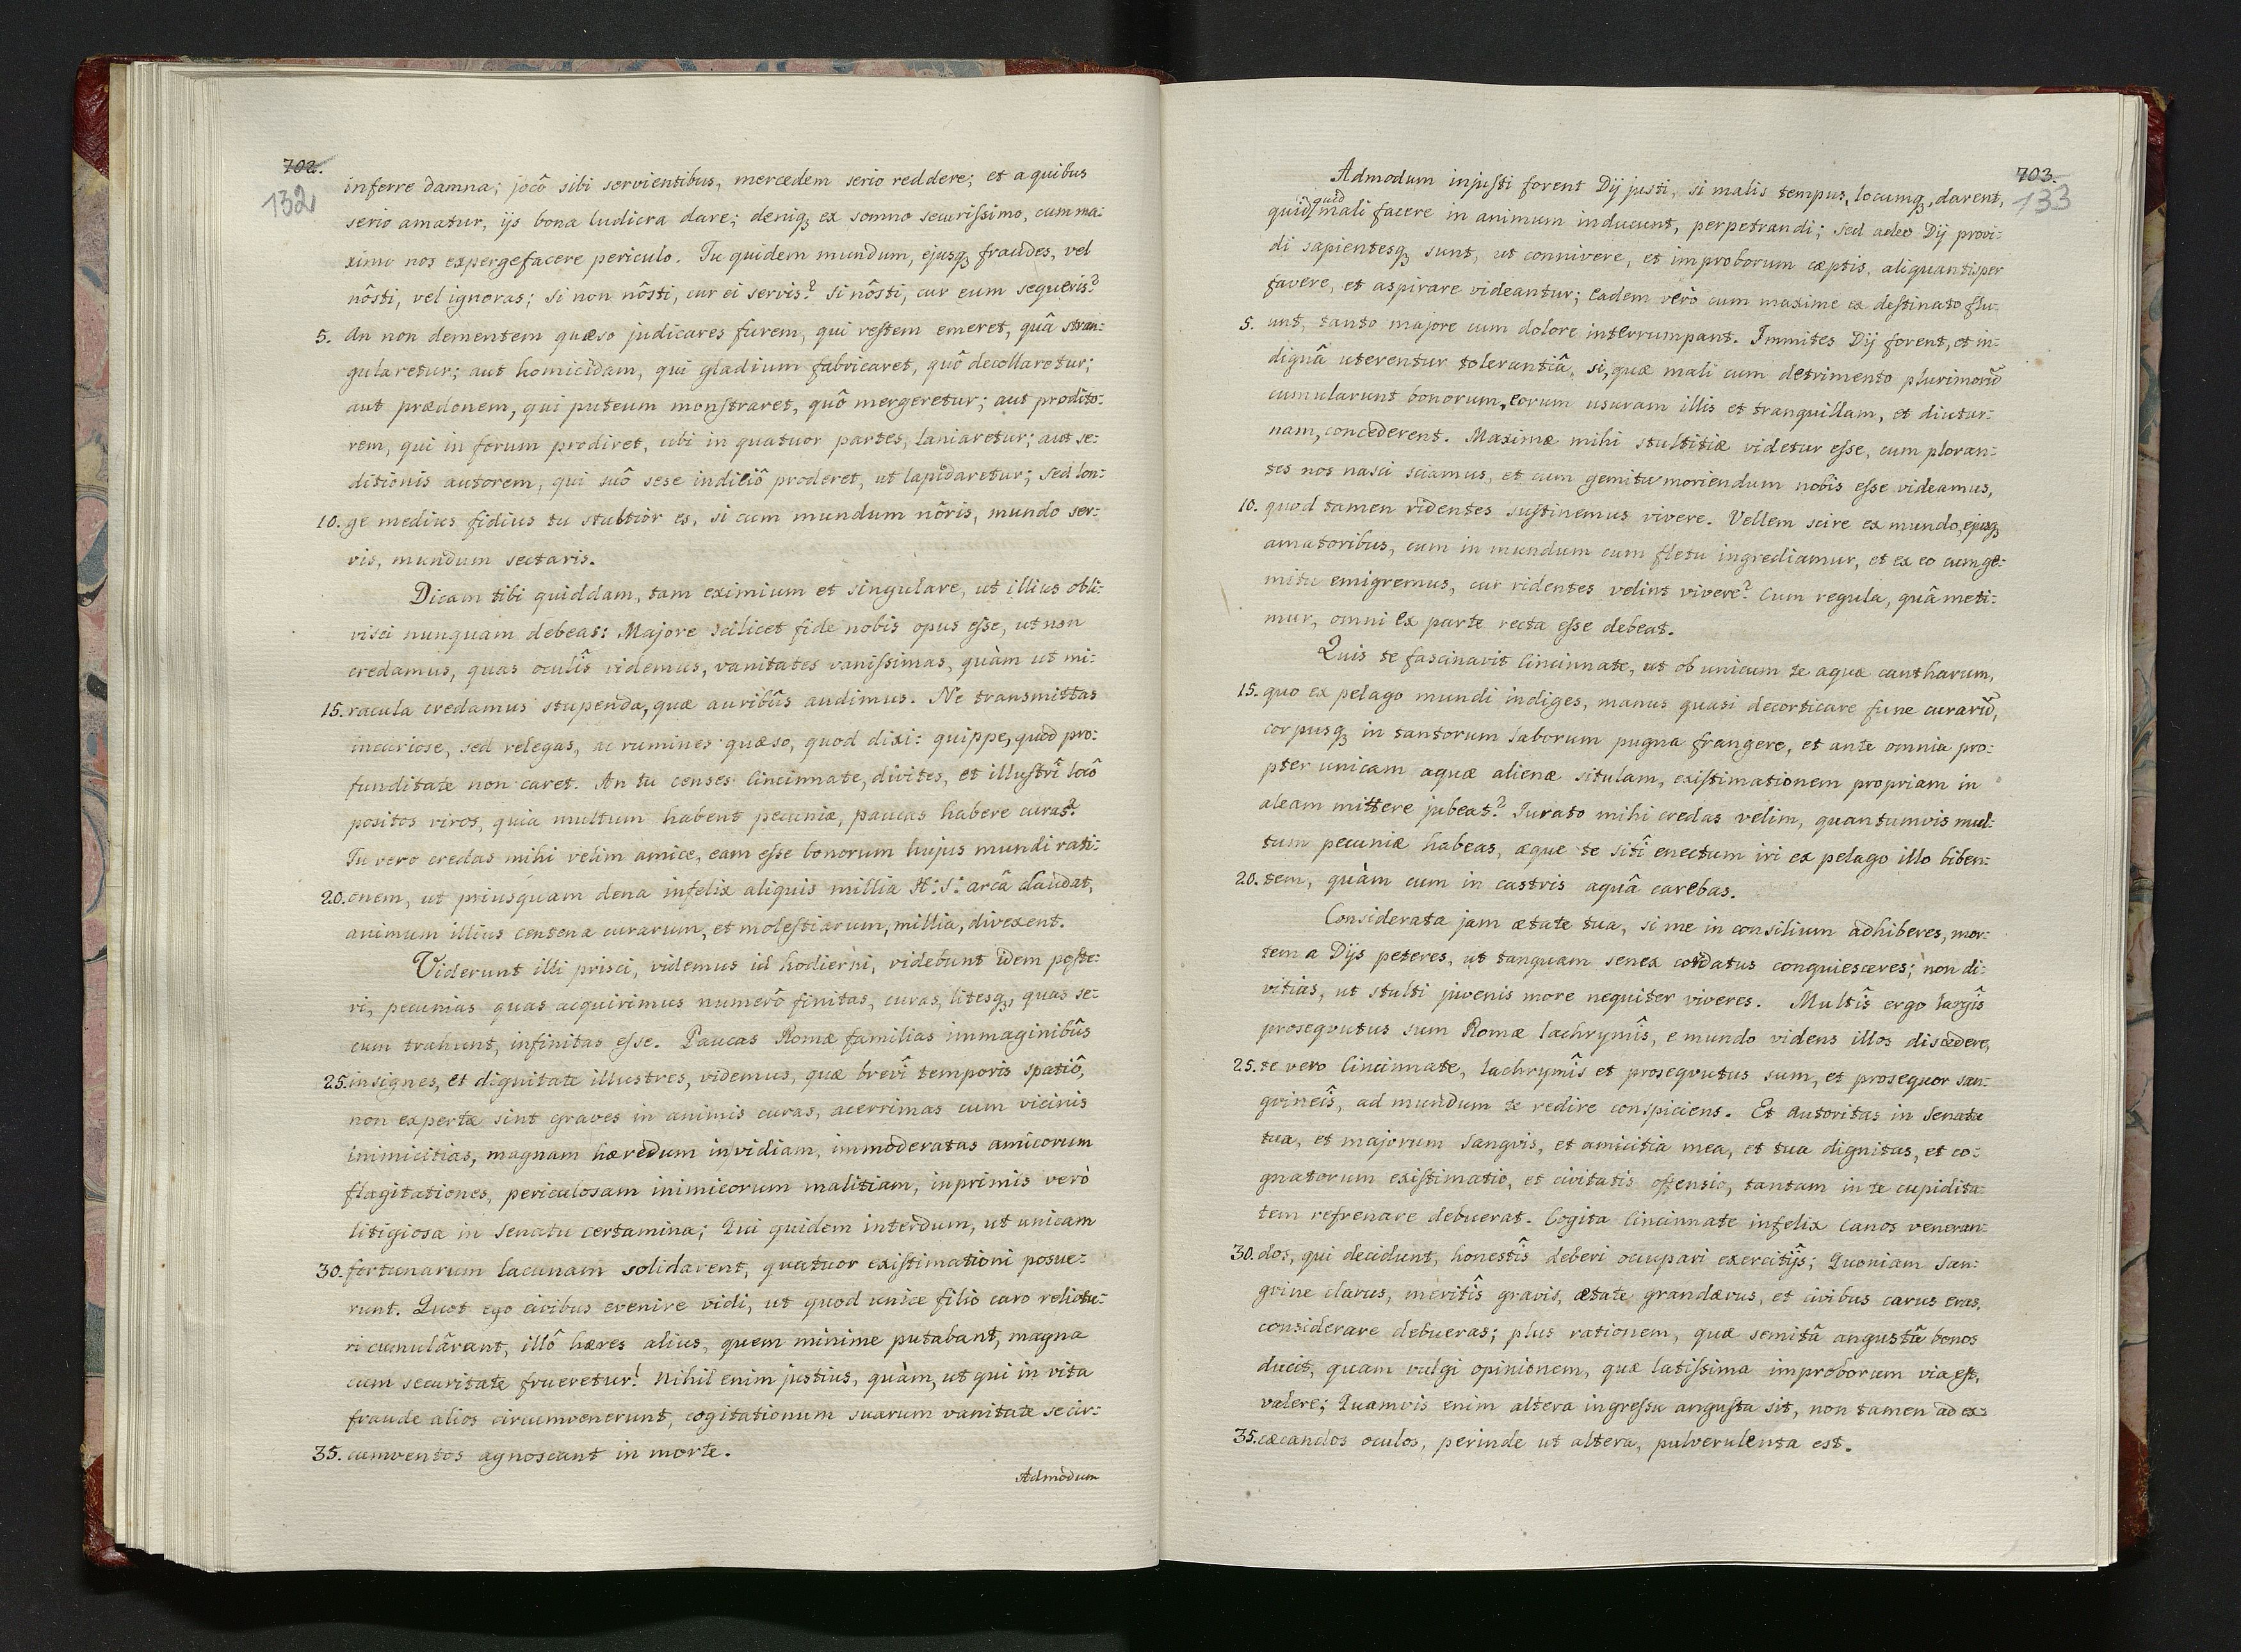 702.
132
inferre damna; jocô sibi servientibus, mercedem serio reddere; et a quibus
serio amatur, ijs bona ludicra dare; deniqꝫ ex somno securissimo, cum ma:
ximo nos expergefacere periculo. Tu quidem mundum, ejusqꝫ fraudes, vel
nôsti, vel ignoras; si non nôsti, cur ei servis? si nôsti, cur eum sequeris?
5. An non dementem quæso judicares furem, qui restem emeret, quâ stran:
gularetur; aut homicidam, qui gladium fabricaret, quô decollaretur;
aut prædonem, qui puteum monstraret, quô mergeretur; aut prodito:
rem, qui in forum prodiret, ubi in quatuor partes, laniaretur; aut se:
ditionis autorem, qui suô sese indiciô proderet, ut lapidaretur; sed lon:
10. ge medius fidius tu stultior es, si cum mundum nôris, mundo ser:
vis, mundum sectaris.
Dicam tibi quiddam, tam eximium et singulare, ut illius obli:
visci nunquam debeas: Majore scilicet fide nobis opus esse, ut non
credamus, quas oculîs videmus, vanitates vanissimas, quàm ut mi:
15. racula credamus stupenda, quæ auribûs audimus. Ne transmittas
incuriose, sed relegas, ac rumines quæso, quod dixi: quippe, quod pro:
funditate non caret. An tu censes Cincinnate, divites, et illustrî locô
positos viros, quia multum habent pecuniæ, paucas habere curas?
Tu vero credas mihi velim amice, eam esse bonorum hujus mundi rati:
20. onem, ut priusquam dena infelix aliquis millia H:S: arcâ claudat,
animum illius centena curarum, et molestiarum, millia, divexent.
Viderunt illi prisci, videmus id hodierni, videbunt idem poste:
ri, pecunias quas acquirimus numerô finitas, curas, litesqꝫ, quas se:
cum trahunt, infinitas esse. Paucas Romæ familias immaginibûs
25. insignes, et dignitate illustres, videmus, quæ brevî temporis spatiô,
non expertæ sint graves in animis curas, acerrimas cum vicinis
inimicitias, magnam hæredum invidiam, immoderatas amicorum
flagitationes, periculosam inimicorum malitiam, inprimis verò
litigiosa in senatu certamina; Qui quidem interdum, ut unicam
30. fortunarum lacunam solidarent, quatuor existimationi posue:
runt. Quot ego civibus evenire vidi, ut quod unice filio caro relictu:
ri cumulârant, illô hæres alius, quem minime putabant, magna
cum securitate frueretur! Nihil enim justius, quàm, ut qui in vita
fraude alios circumvenerunt, cogitationum suarum vanitate se cir:
35. cumventos agnoscant in morte.
Admodum
703.
133
Admodum injusti forent Dij justi, si malis tempus, locumqꝫ, darent,
quid
quid mali facere in animum inducunt, perpetrandi; sed adeo Dij provi:
di sapientesqꝫ sunt, ut connivere, et improborum cæptis, aliquantisper
favere, et aspirare videantur; eadem verò cum maxime ex destinato flu
5. unt, tanto majore cum dolore interrumpant. Immites Dij forent, et in:
dignâ uterentur tolerantiâ, si, quæ mali cum detrimento plurimorũ
cumularunt bonorum, eorum usuram illis et tranquillam, et diutur:
nam, concederent. Maximæ mihi stultitiæ videtur esse, cum ploran:
tes nos nasci sciamus, et cum gemitu moriendum nobis esse videamus,
10. quod tamen ridentes sustinemus vivere. Vellem scire ex mundo, ejusqꝫ
amatoribus, cum in mundum cum fletu ingrediamur, et ex eo cum ge:
mitu emigremus, cur ridentes velint vivere? Cum regula, quâ meti:
mur, omni ex parte recta esse debeat.
Quis te fascinavit Cincinnate, ut ob unicum te aquæ cantharum,
15. quo ex pelago mundi indiges, manus quasi decorticare fune curarũ,
corpusqꝫ in tantorum laborum pugna frangere, et ante omnia pro:
pter unicam aquæ alienæ situlam, existimationem propriam in
aleam mittere jubeat? Jurato mihi credas velim, quantumvis mul:
tum pecuniæ habeas, æque te sitî enectum iri ex pelago illo biben:
20. tem, quàm cum in castris aquâ carebas.
Considerata jam ætate tua, si me in consilium adhiberes, mor:
tem a Dijs peteres, ut tanquam senex cordatus conquiesceres; non di:
vitias, ut stulti juvenis more nequiter viveres. Multîs ergo largîs
proseqvutus sum Romæ lachrymîs, e mundo videns illos discedere,
25. te vero Cincinnate, lachrymîs et proseqvutus sum, et prosequor san:
gvineîs, ad mundum te redire conspiciens. Et autoritas in senatu
tua, et majorum sangvis, et amicitia mea, et tua dignitas, et co:
gnatorum existimatio, et civitatis offensio, tantam in te cupidita:
tem refrenare debuerat. Cogita Cincinnate infelix canos veneran:
30. dos, qui decidunt, honestîs deberi occupari exercitijs; Quoniam san:
gvine clarus, meritîs gravis, ætate grandævus, et civibus carus eras,
considerare debueras; plus rationem, quæ semitâ angustâ bonos
ducit, quam vulgi opinionem, quæ latissima improborum via est,
valere; Quamvis enim altera ingressu angusta sit, non tamen ad ex:
35. cæcandos oculos, perinde ut altera, pulverulenta est.